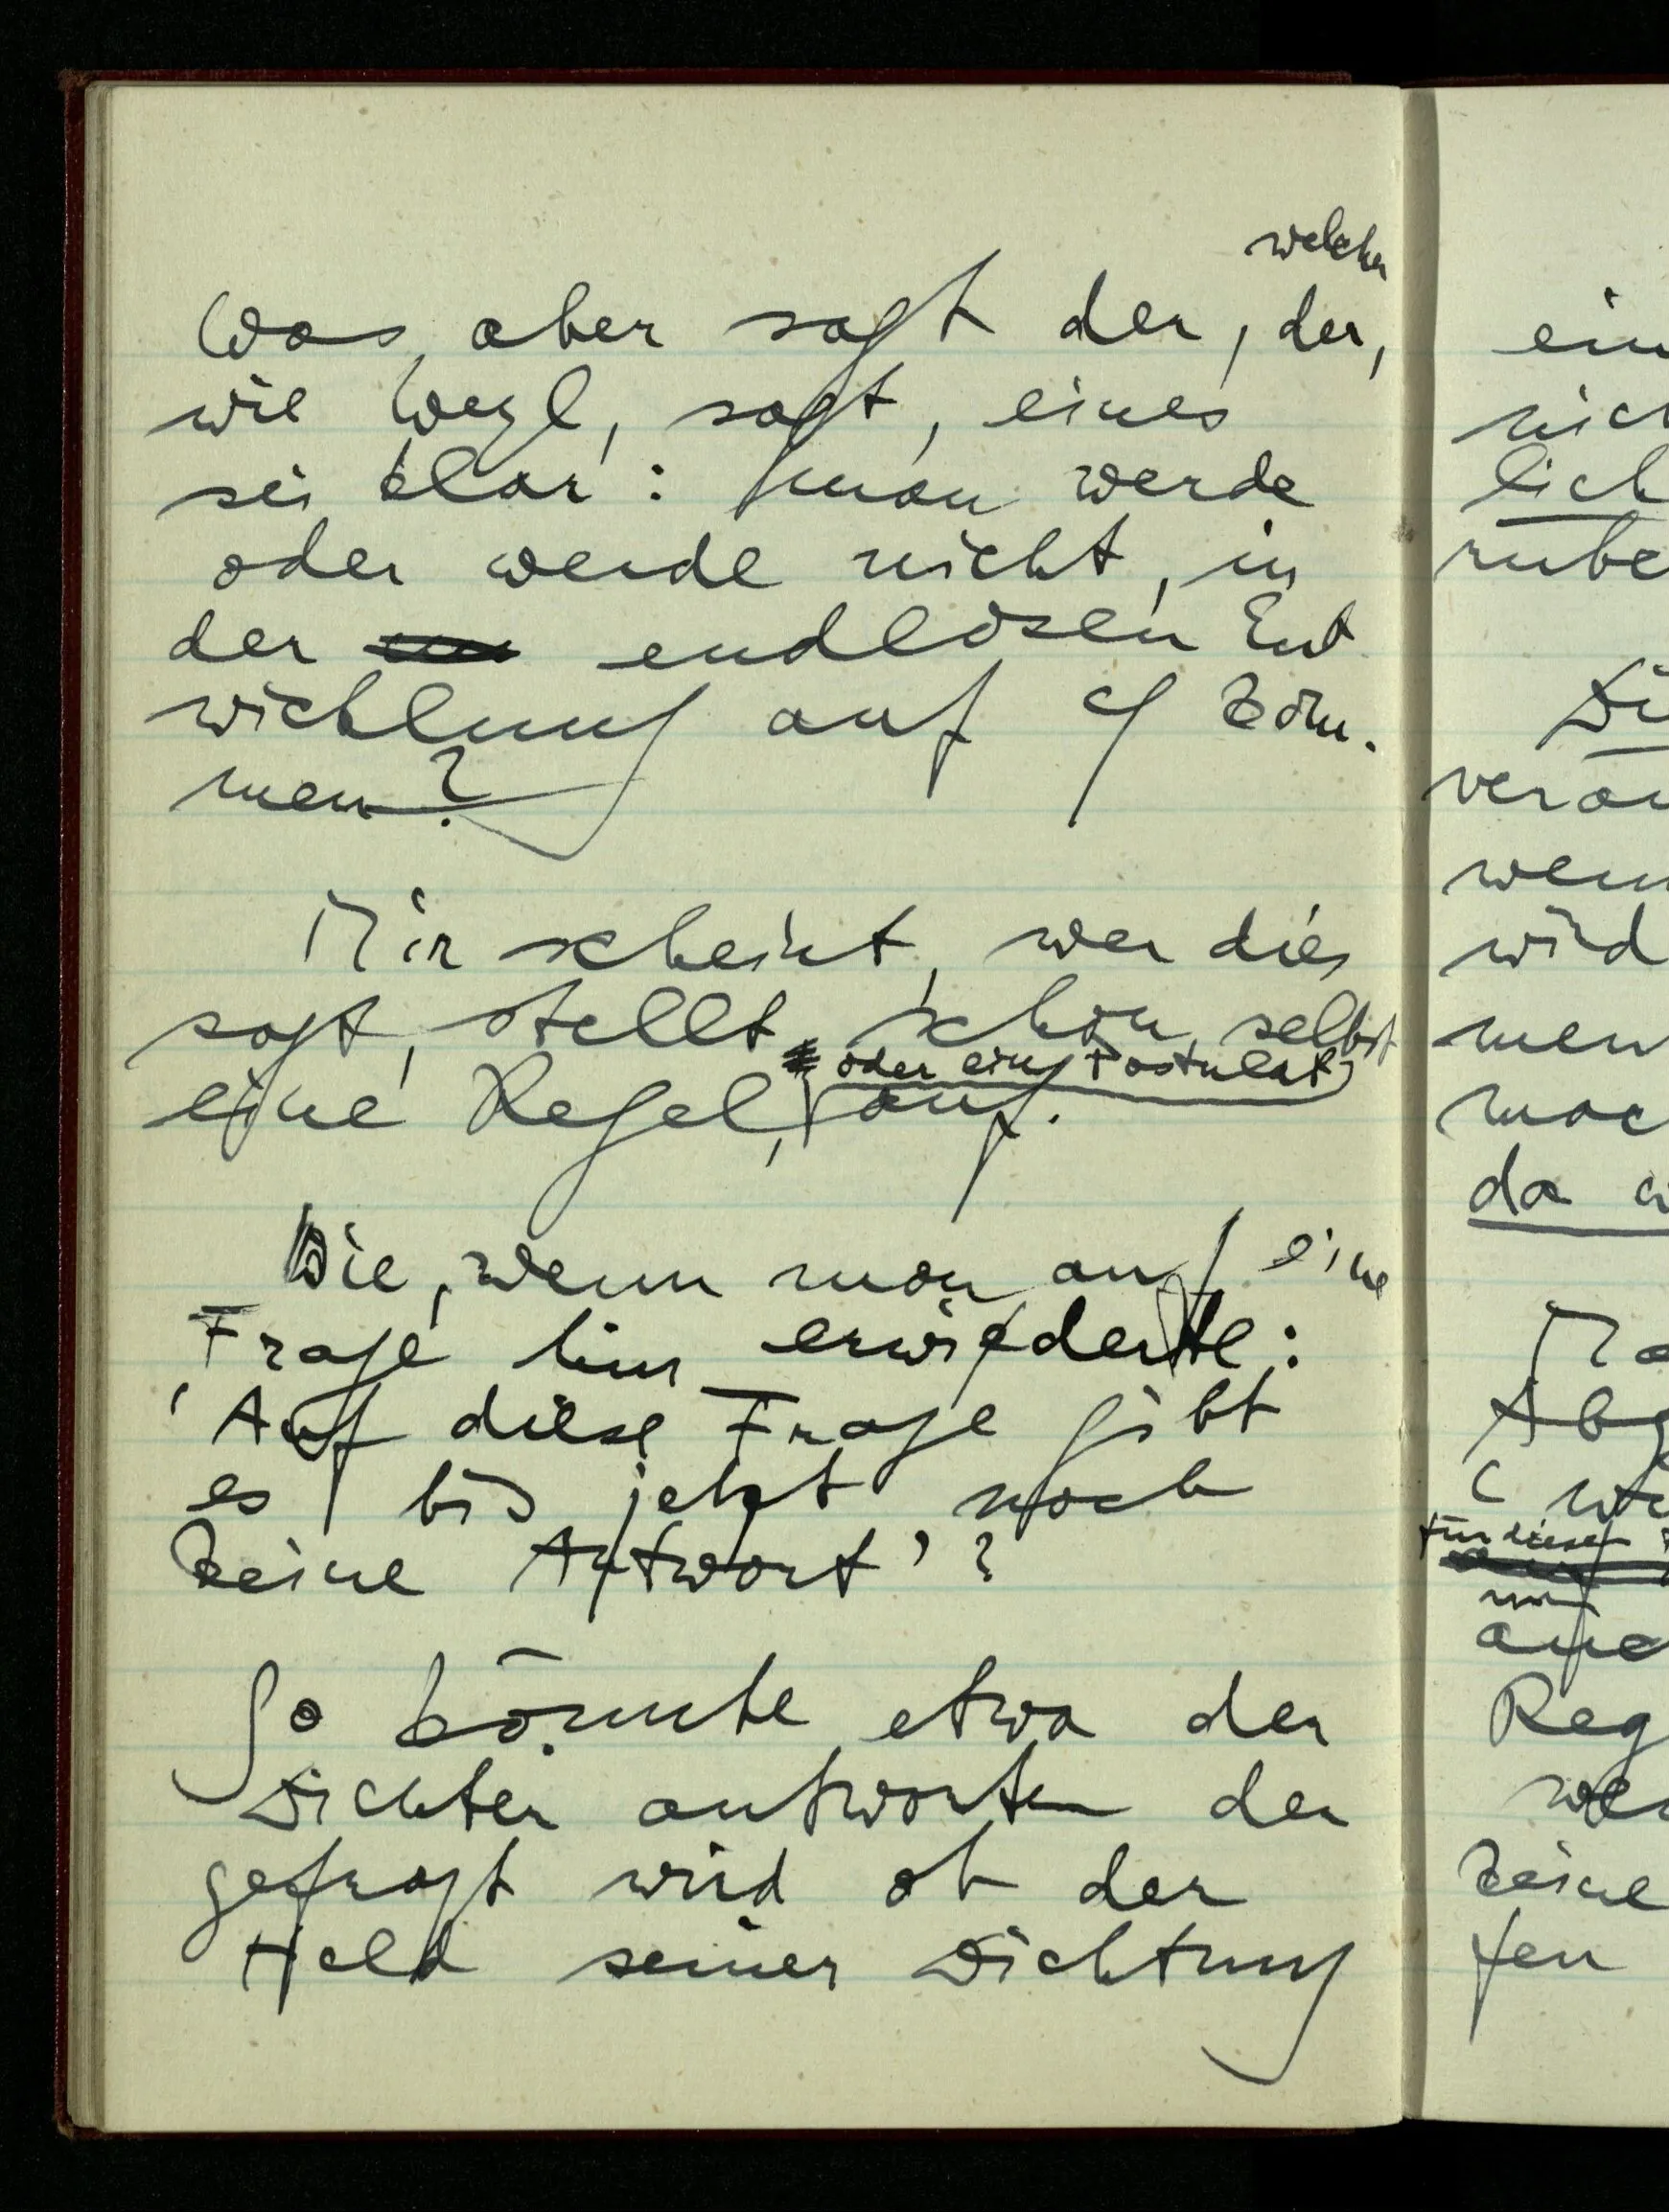 welcher
Was aber sagt der, der,
wie Weyl, sagt, eines
sei klar: man werde
oder werde nicht, in
der endlosen Ent
wicklung auf φ kom-
men?
Mir scheint, wer dies
sagt, stellt schon selbst
oder ein Postulat
eine Regel, auf.
Wie, wenn man auf eine
Frage hin erwiderte:
'Auf diese Frage gibt
es bis jetzt noch
keine Antwort'?
So könnte etwa der
Dichter antworten der
gefragt wird ob der
Held seiner Dichtung
ein
nich
lich
rübe
Di
veran
wenn
wird
men
mac
da
für diese
Reg
keine
fen